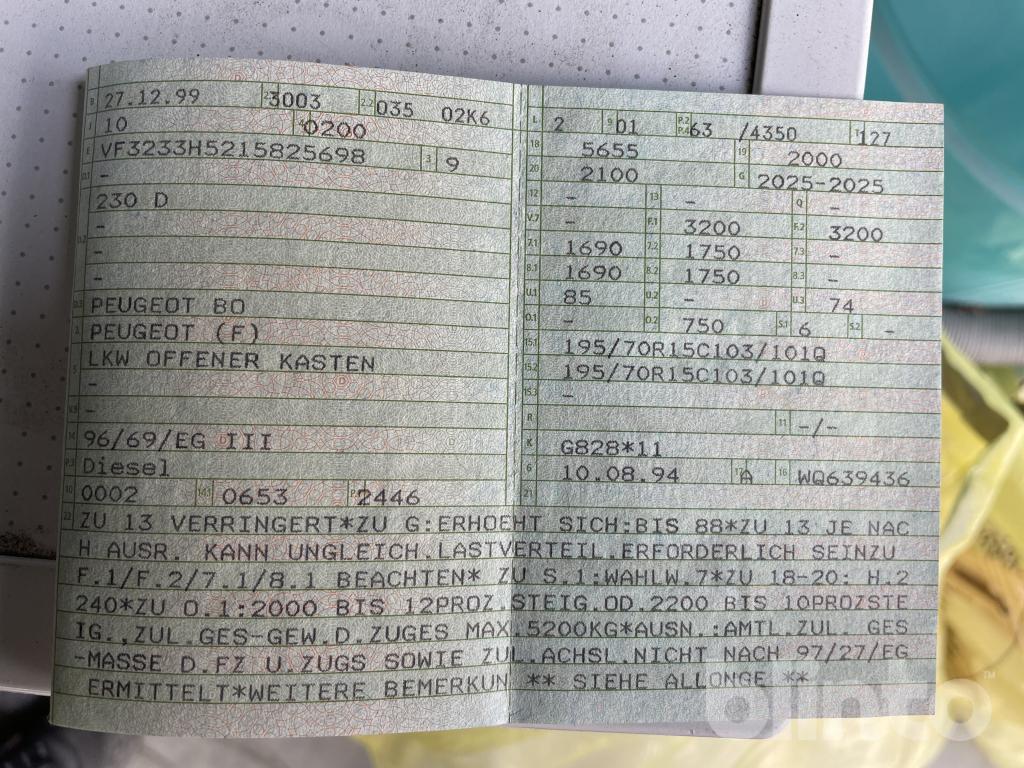 B 27.12.99 2.1 3003 2.2 035 02K6
J 10 4 0200
E VF3233H5215825698 3 9
D.1 -
230 D
D.2 -
-
-
D.3 PEUGEOT BO
2 PEUGEOT (F)
5 LKW OFFENER KASTEN
-
V.9 -
14 96/69/EG III
P.3 Diesel
10 0002 14.1 0653 P.1 2446
L 2 9 01 P.2 P.4 63 /4350 T 127
18 5655 19 2000
20 2100 G 2025-2025
12 - 13 - Q -
V.7 - F.1 3200 F.2 3200
7.1 1690 7.2 1750 7.3 -
8.1 1690 8.2 1750 8.3 -
U.1 85 U.2 - U.3 74
O.1 - O.2 750 S.1 6 S.2 -
15.1 195/70R15C103/101Q
15.2 195/70R15C103/101Q
15.3 -
R 11 -/-
K G828*11
6 10.08.94 17 A 16 WQ639436
21
22 ZU 13 VERRINGERT*ZU G:ERHOEHT SICH:BIS 88*ZU 13 JE NAC
H AUSR. KANN UNGLEICH.LASTVERTEIL.ERFORDERLICH SEINZU
F.1/F.2/7.1/8.1 BEACHTEN* ZU S.1:WAHLW.7*ZU 18-20: H.2
240*ZU O.1:2000 BIS 12PROZ.STEIG.OD.2200 BIS 10PROZSTE
IG.,ZUL.GES-GEW.D.ZUGES MAX.5200KG*AUSN.:AMTL.ZUL. GES
-MASSE D.FZ U.ZUGS SOWIE ZUL.ACHSL.NICHT NACH 97/27/EG
ERMITTELT*WEITERE BEMERKUN ** SIEHE ALLONGE **
olinto™